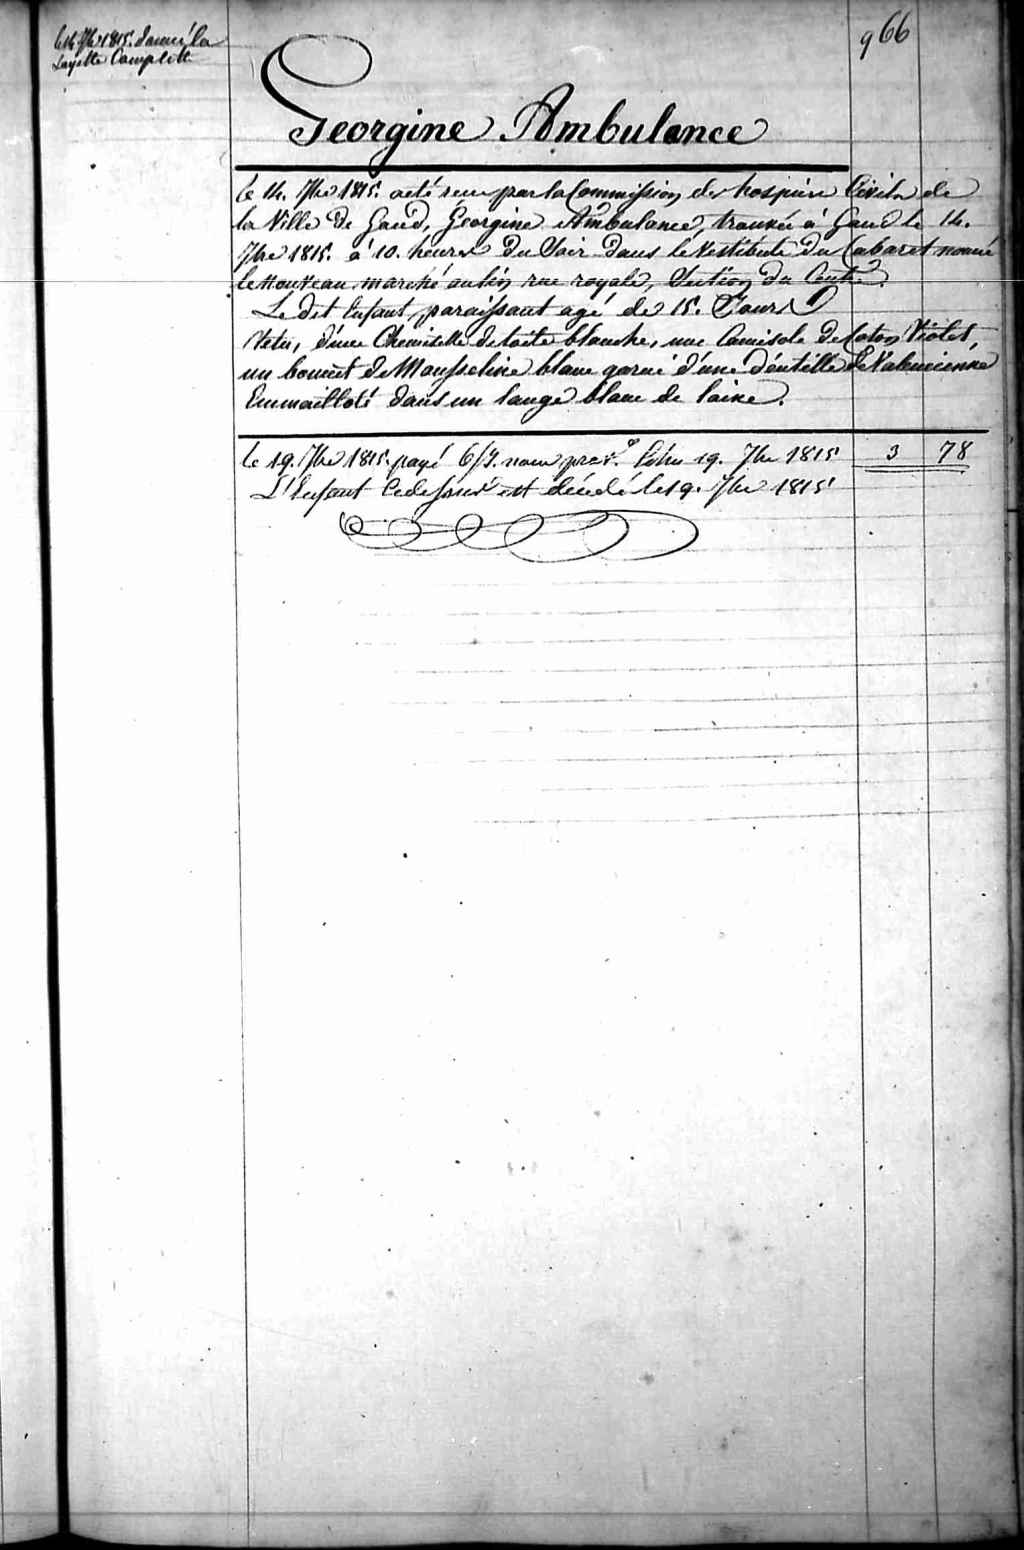 966
le 14 7bre 1815. donné la
Layette Complette
Georgine Ambulance
Le 14. 7bre 1815. a eté reçu par la Commission des hospices Civils de
la Ville de Gand, Georgine Ambulance, trouvée à Gand le 14.
7bre 1815. à 10. heures du Soir dans le Vestibule du Cabaret nommé
le Nouveau marché au lin rue royale, Section du Centre.
Le dit Enfant, paraissant agé de 15. Jours
Vetu, d'une Chemisette de toile blanche, une Camisole de Coton Violet,
un bonnet de Mousseline blanc garni d'une déntelle de Valencienne
Emmailloté dans un lange blanc de laine.
le 19. 7bre 1815. payé 6/J. nour Echu 19. 7bre 1815 3 78
L'Enfant Cidessus est décédé le 19. 7bre 1815